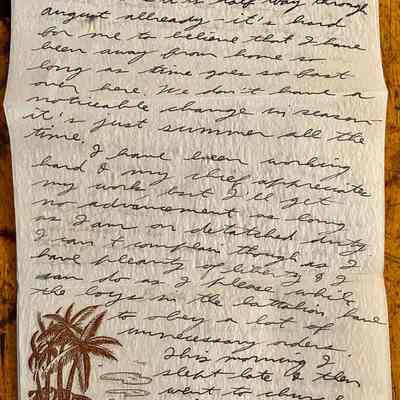 it is half way through
august allready - it's hard
for me to believe that I have
been away from home so
long as time goes so fast
over here. We don't have a
noticeable change in season
it's just summer all the
time.
I have been working
hard & my chief appreciates
my work but I'll get
no advancement as long
as I am on detatched duty
I can't complain though as I
have pleanty of liberty & I
can do as I please while
the boys in the battalion have
to obey a lot of
unnecessary orders.
This morning I
slept late & then
went to church